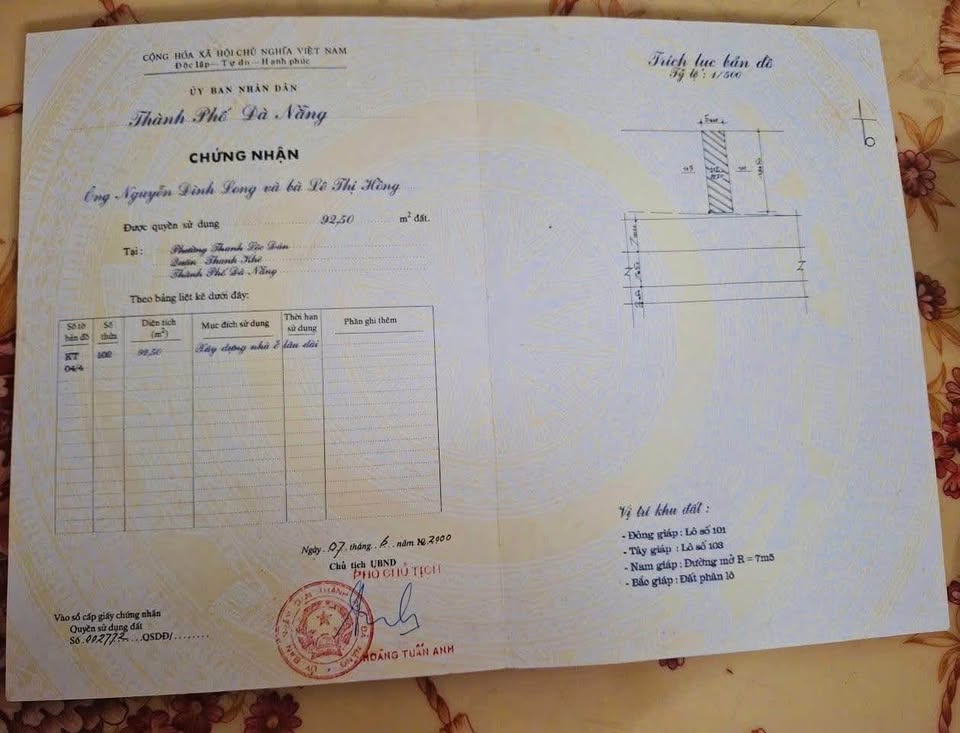 CỘNG HÒA XÃ HỘI CHỦ NGHĨA VIỆT NAM
Độc lập - Tự do - Hạnh phúc
ỦY BAN NHÂN DÂN
Thành Phố Đà Nẵng
CHỨNG NHẬN
Ông Nguyễn Đình Long và bà Lê Thị Hồng
Được quyền sử dụng 92,50 m² đất.
Tại : Phường Thanh Lộc Đán
Quận Thanh Khê
Thành Phố Đà Nẵng
Theo bảng liệt kê dưới đây:
Số tờ bản đồ Số thửa Diện tích (m²) Mục đích sử dụng Thời hạn sử dụng Phần ghi thêm
KT 04/4 102 92,50 Xây dựng nhà ở lâu dài
Ngày 07 tháng 6 năm 2000
Chủ tịch UBND
PHÓ CHỦ TỊCH
HOÀNG TUẤN ANH
Vào sổ cấp giấy chứng nhận
Quyền sử dụng đất
Số 002772 QSDĐ/
Trích lục bản đồ
Tỷ lệ : 1/500
Vị trí khu đất :
- Đông giáp : Lô số 101
- Tây giáp : Lô số 103
- Nam giáp : Đường mở R = 7m5
- Bắc giáp : Đất phân lô